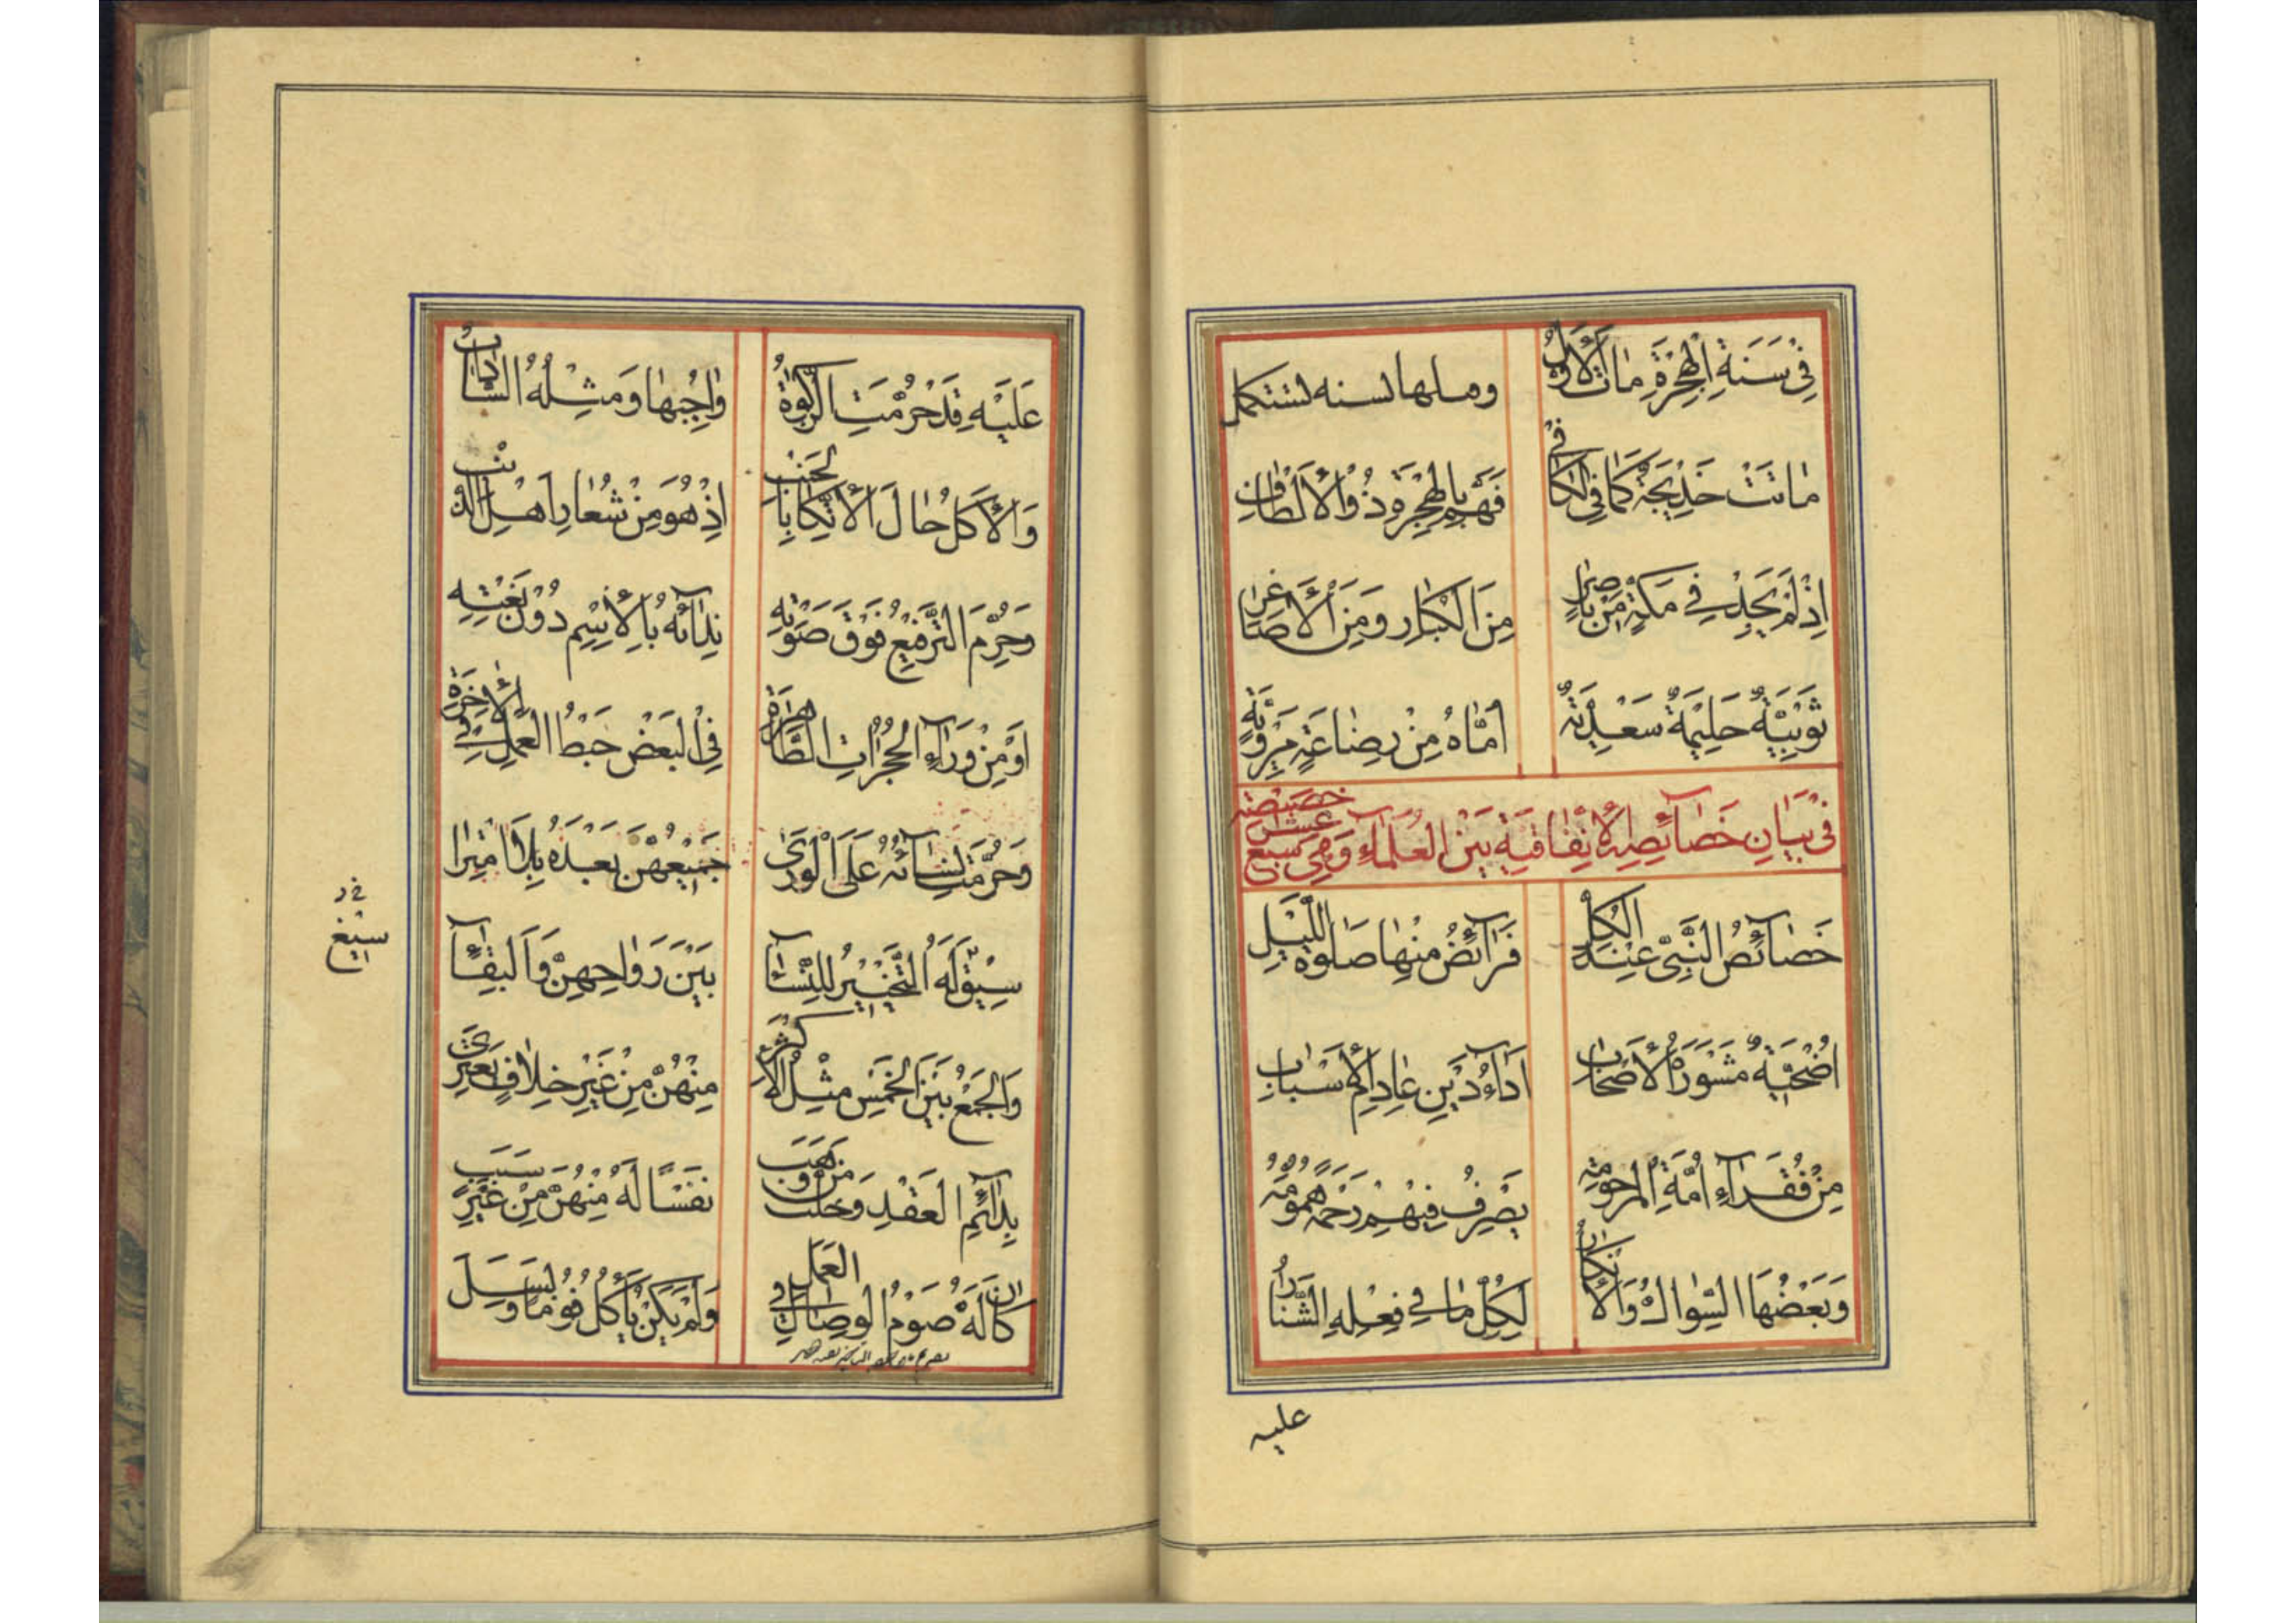 فِي سَنَةِ الْهِجْرَةِ مٰاتَ الْأَوَّلُ وملها لسنه لتتكمل
مٰاتَتْ خَدِيجَةُ كَمٰا فِي الْكٰافِي فَهَمَّ بِالْهِجْرَةِ ذُو الْأَلْطٰافِ
إِذْ لَمْ يَجِدْ فِي مَكَّةٍ مِنْ نٰاصِرٍ مِنَ الْكِبٰارِ وَمِنَ الْأَصٰاغِرِ
ثُوَيْبِيَّةٌ حَلِيمَةٌ سَعْدِيَّةٌ أُمّٰاهُ مِنْ رِضٰاعَةٍ مَرْوِيَّةٍ
فِي بَيٰانِ خَصٰآئِصِهِ الْإِتِّفٰاقِيَّةِ بَيْنَ الْعُلَمٰاءِ وَهِيَ سَبْعَ عَشَرَ خَصِيصَةً
خَصٰآئِصُ النَّبِيِّ عِنْدَ الْكُلِّ فَرٰآئِضُ مِنْهٰا صَلٰوةُ اللَّيْلِ
اُضْحِيَّةٌ مَشْوَرَةُ الْأَصْحٰابِ اَدٰآءُ دَيْنِ عٰادِمِ الْأَسْبٰابِ
مِنْ فُقَرٰآءِ اُمَّةِ الْمَرْحُومَةِ يَصْرِفُ فِيهِمْ رَحْمَةً هُمُومَهُ
وَبَعْضُهَا السِّوٰاكُ وَالْإِنْكٰارُ لِكُلِّ مٰا فِي فِعْلِهِ الشَّنٰارُ
عليه
عَلَيْهِ قَدْ حُرِّمَتِ الزَّكٰوةُ وٰاجِبُهٰا وَمِثْلُهُ السّٰادٰاتُ
وَالْأَكْلُ حٰالَ الْإِتِّكٰا بِالْجَنْبِ إِذْ هُوَ مِنْ شُعٰارِ اَهْلِ الذَّنْبِ
وَحُرِّمَ التَّرَفُّعُ فَوْقَ صَوْتِهِ نِدٰآئُهُ بِالْإِسْمِ دُونَ نَعْتِهِ
اَوْ مِنْ وَرٰآءِ الْحُجُرٰاتِ الطّٰاهِرَةِ فِي الْبَعْضِ حَبْطُ الْعَمَلِ فِي الْاٰخِرَةِ
وَحُرِّمَتْ نِسٰآئُهُ عَلَى الْوَرىٰ جَمِيعُهُنَّ بَعْدَهُ بِلَا امْتِرٰا
سِيقَ لَهُ التَّخْيِيرُ لِلنِّسٰآءِ بَيْنَ رَوٰاحِهِنَّ وَالْبَقٰآءِ
وَالْجَمْعُ بَيْنَ الْخَمْسِ مِثْلُ الْأَكْثَرِ مِنْهُنَّ مِنْ غَيْرِ خِلٰافٍ يَعْتَرِي
بِدٰآئِمِ الْعَقْدِ وَحَلَّتْ مَنْ وَهَبَ نَفْسًا لَهُ مِنْهُنَّ مِنْ غَيْرِ سَبَبٍ
كٰانَ لَهُ صَوْمُ الْوِصٰالِ فِي الْعَمَلِ وَلَمْ يَكُنْ يَأْكُلُ فُومًا وَبَسَلَ